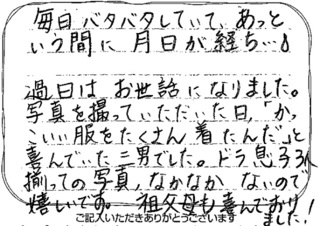 毎日バタバタしていて、あっと
いう間に月日が経ち…♪
過日はお世話になりました。
写真を撮っていただいた日、「かっ
こいい服をたくさん着たんだ」と
喜んでいた三男でした。ドラ息子3人
揃っての写真、なかなかないので
嬉しいです。祖父母も喜んでおり
ました!
ご記入いただきありがとうございます